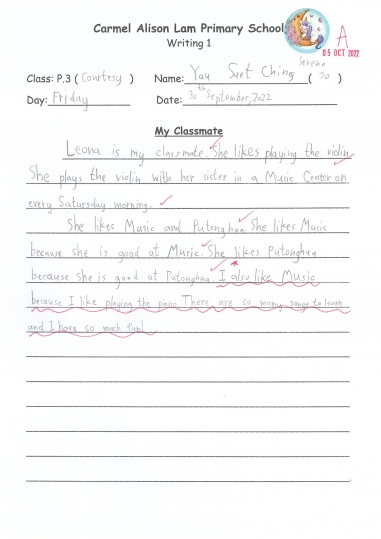 Carmel Alison Lam Primary School
Writing 1
A
05 OCT 2022
Serene
Class: P.3 ( Courtesy ) Name: Yau Suet Ching ( 20 )
Day: Friday Date: 30th September, 2022
My Classmate
Leona is my classmate. She likes playing the violin.
She plays the violin with her sister in a Music Center on
every Satursday morning.
She likes Music and Putonghua. She likes Music
because she is good at Music. She likes Putonghua
because she is good at Putonghua. I also like Music
because I like playing the piano. There are so many songs to learn
and I have so much fun!